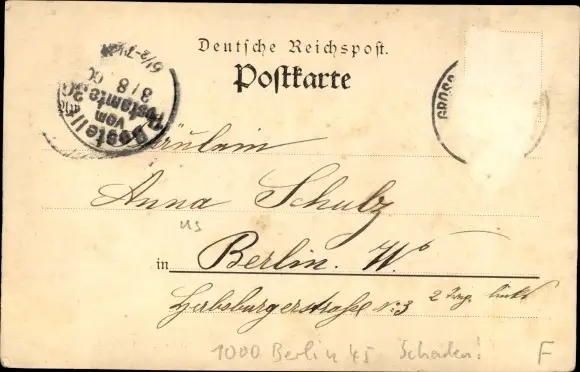 Deutsche Reichspost.
Postkarte
6½-7
8/8 00
Bestellt
vom
Postamte 30
GROSS
Fräulein
Anna Schulz
in Berlin. W.
Habsburgerstraße No 3 2 Trp. links
1000 Berlin 45 Schaden! F